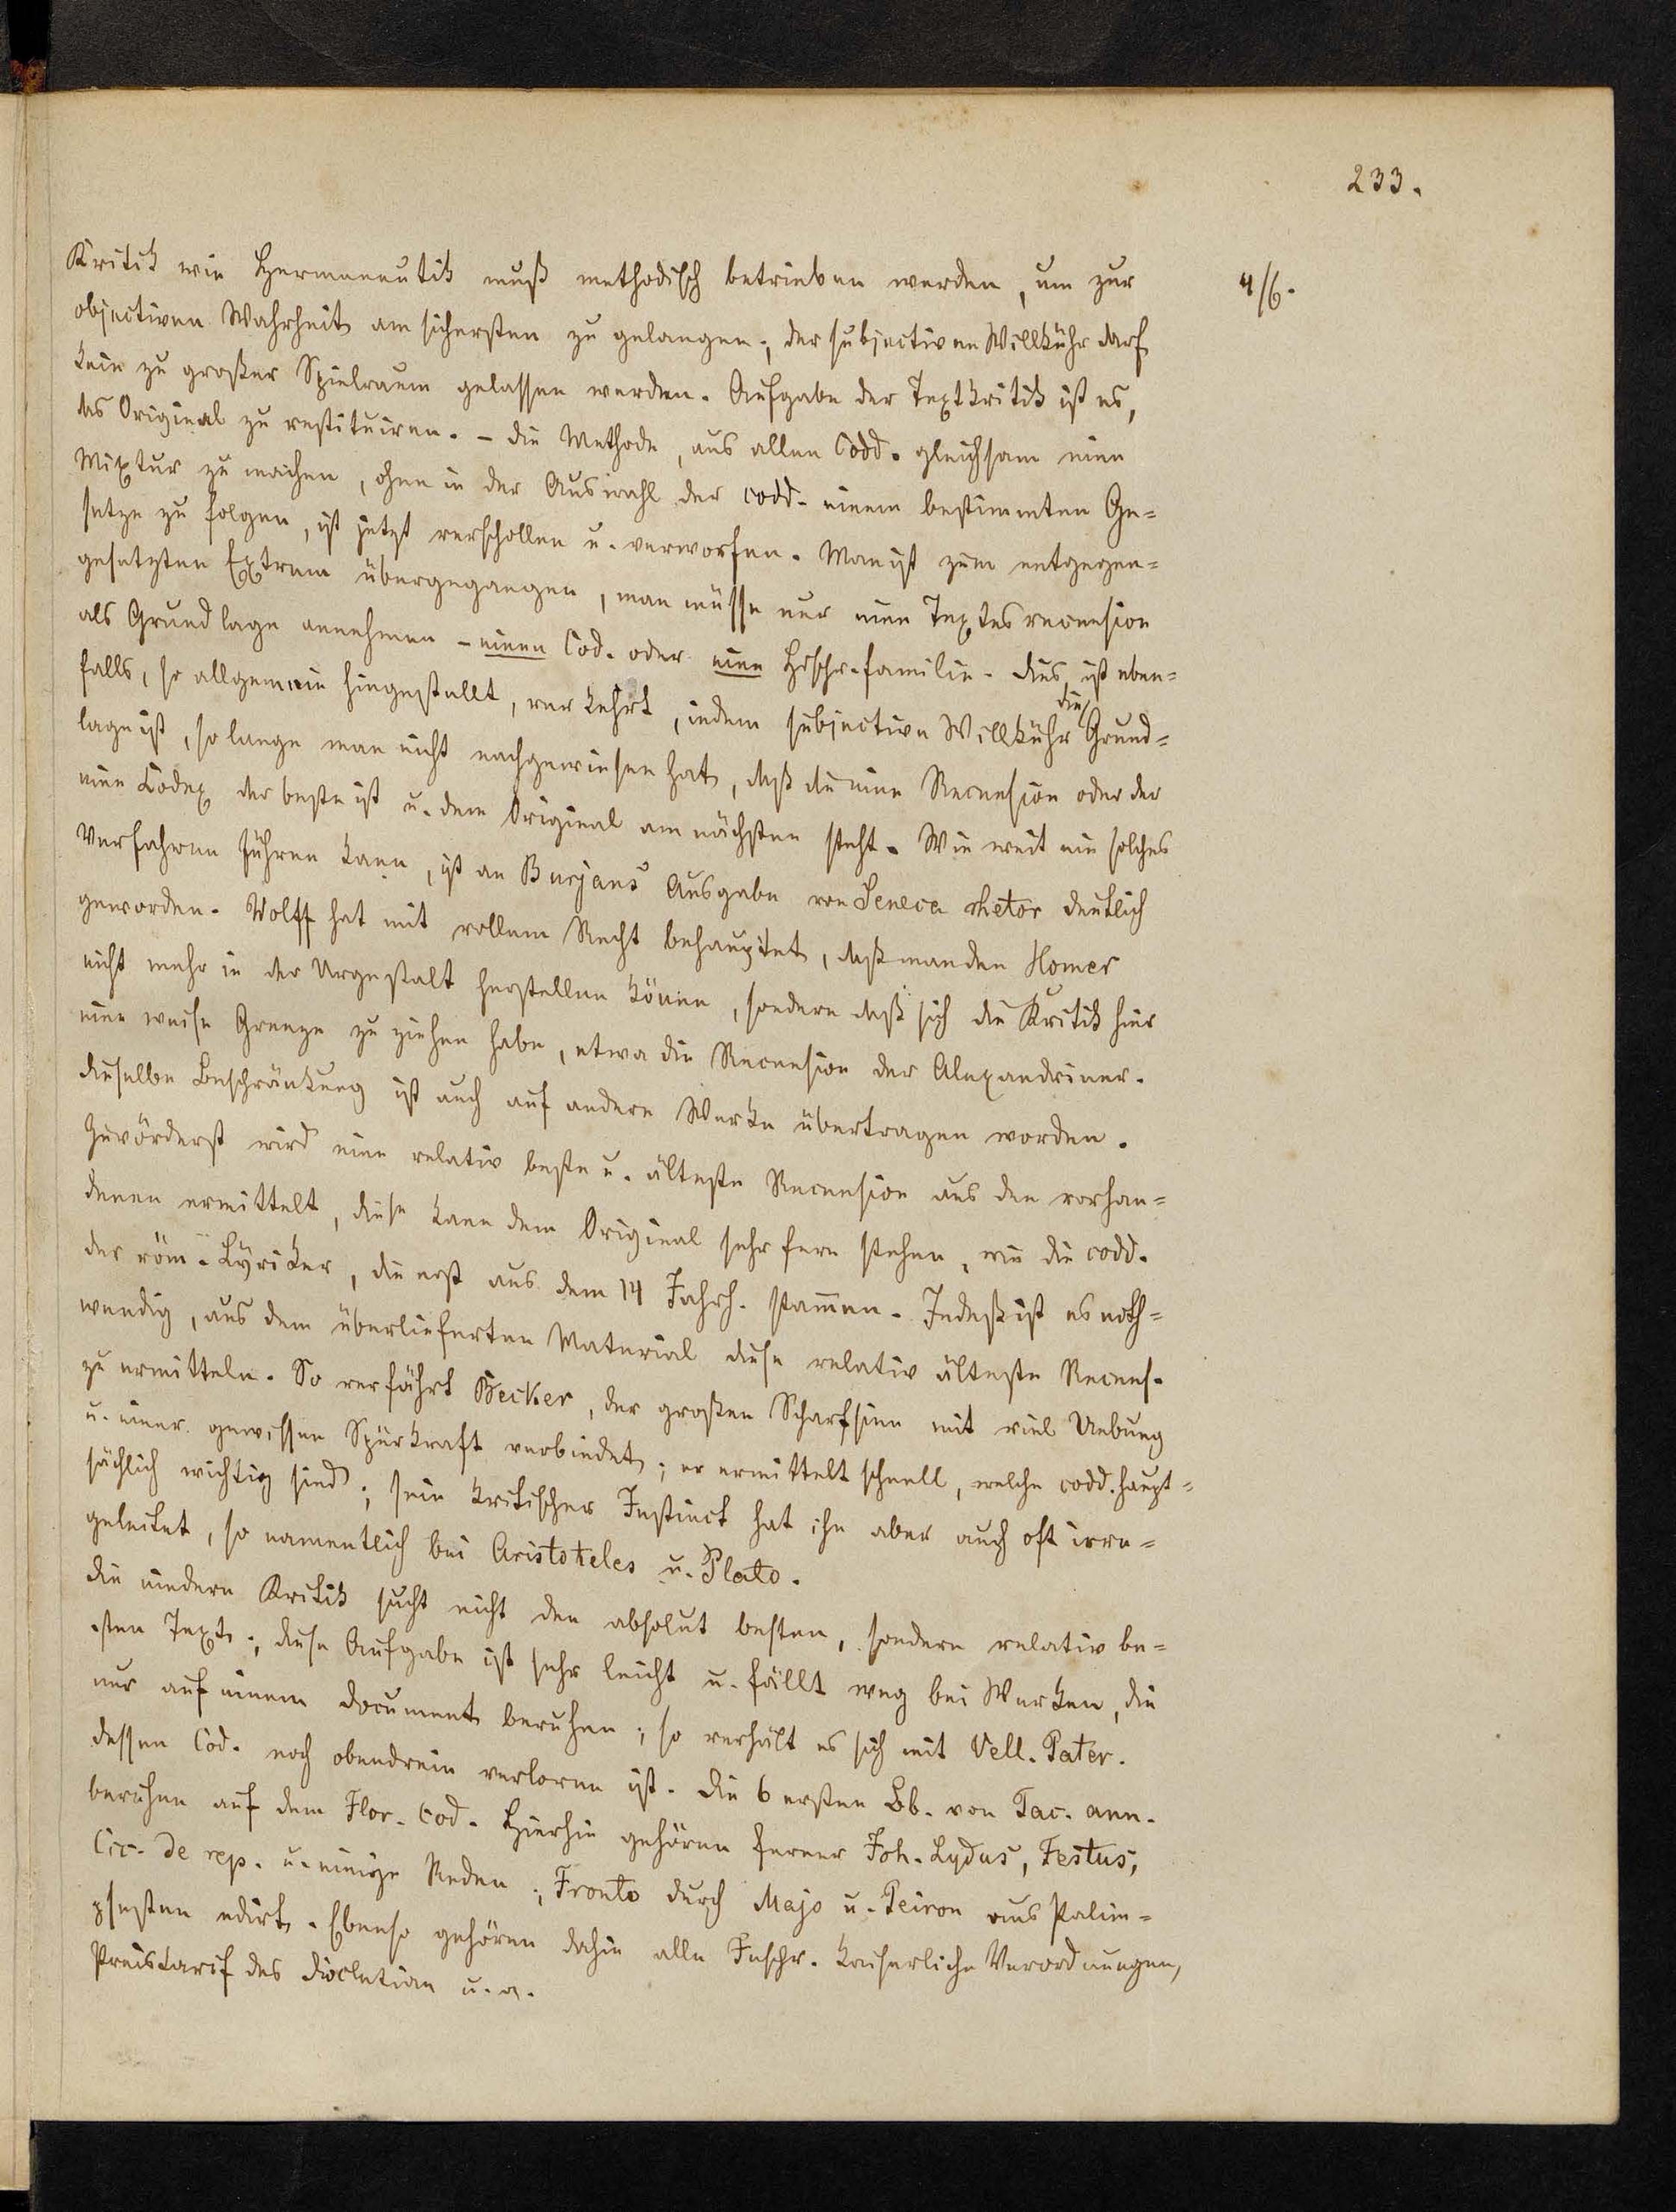 233.
4/6.
Kritik wie Hermeneutik muß methodisch betrieben werden, um zur
objectiven Wahrheit am sichersten zu gelangen; der subjectiven Willkühr darf
kein zu großer Spielraum gelassen werden. Aufgabe der Textkritik ist es,
das Original zu restituiren. – Die Methode, aus allen Codd. gleichsam eine
Mixtur zu machen, ohne in der Auswahl der codd. einem bestimmten Ge=
setze zu folgen, ist jetzt verschollen u. verworfen. Man ist zum entgegen=
gesetzten Extrem übergegangen, man müsse nur eine Textesrecension
als Grundlage annehmen – einen Cod. oder eine Hdschr.familie. Dies ist eben=
falls, so allgemein hingestellt, verkehrt, indem subjective Willkühr die Grund=
lage ist, so lange man nicht nachgewiesen hat, daß die eine Recension oder der
eine Codex der beste ist u. dem Original am nächsten steht. Wie weit ein solches
Verfahren führen kann, ist an Bursians Ausgabe von Seneca rhetor deutlich
geworden. Wolff hat mit vollem Recht behauptet, daß man den Homer
nicht mehr in der Urgestalt herstellen könne, sondern daß sich die Kritik hier
eine weise Grenze zu ziehen habe, etwa die Recension der Alexandriner.
Dieselbe Beschränkung ist auch auf andere Werke übertragen worden.
Zuvörderst wird eine relativ beste u. älteste Recension aus den vorhan=
denen ermittelt, diese kann dem Original sehr fern stehen, wie die codd.
der röm. Lyriker, die erst aus dem 14 Jahrh. stam̄en. Indeß ist es noth=
wendig, aus dem überlieferten Material diese relativ älteste Recens.
zu ermitteln. So verfährt Becker, der großen Scharfsinn mit viel Uebung
u. einer gewissen Spürkraft verbindet; er ermittelt schnell, welche codd. haupt=
sächlich wichtig sind; sein kritischer Instinct hat ihn aber auch oft irre=
geleitet, so namentlich bei Aristoteles u. Plato.
Die niedere Kritik sucht nicht den absolut besten, sondern relativ be=
sten Text; diese Aufgabe ist sehr leicht u. fällt weg bei Werken, die
nur auf einem Document beruhen; so verhält es sich mit Vell. Pater.
dessen Cod. noch obendrein verloren ist. Die 6 ersten Bb. von Tac. ann.
beruhen auf dem Flor. Cod. Hierhin gehören ferner Joh. Lydus, Festus,
Cic. de rep. u. einige Reden; Fronto durch Majo u. Peiron aus Palim=
psesten edirt. Ebenso gehören dahin alle Inschr. kaiserliche Verordnungen,
Preistarif des Diocletian u. a.